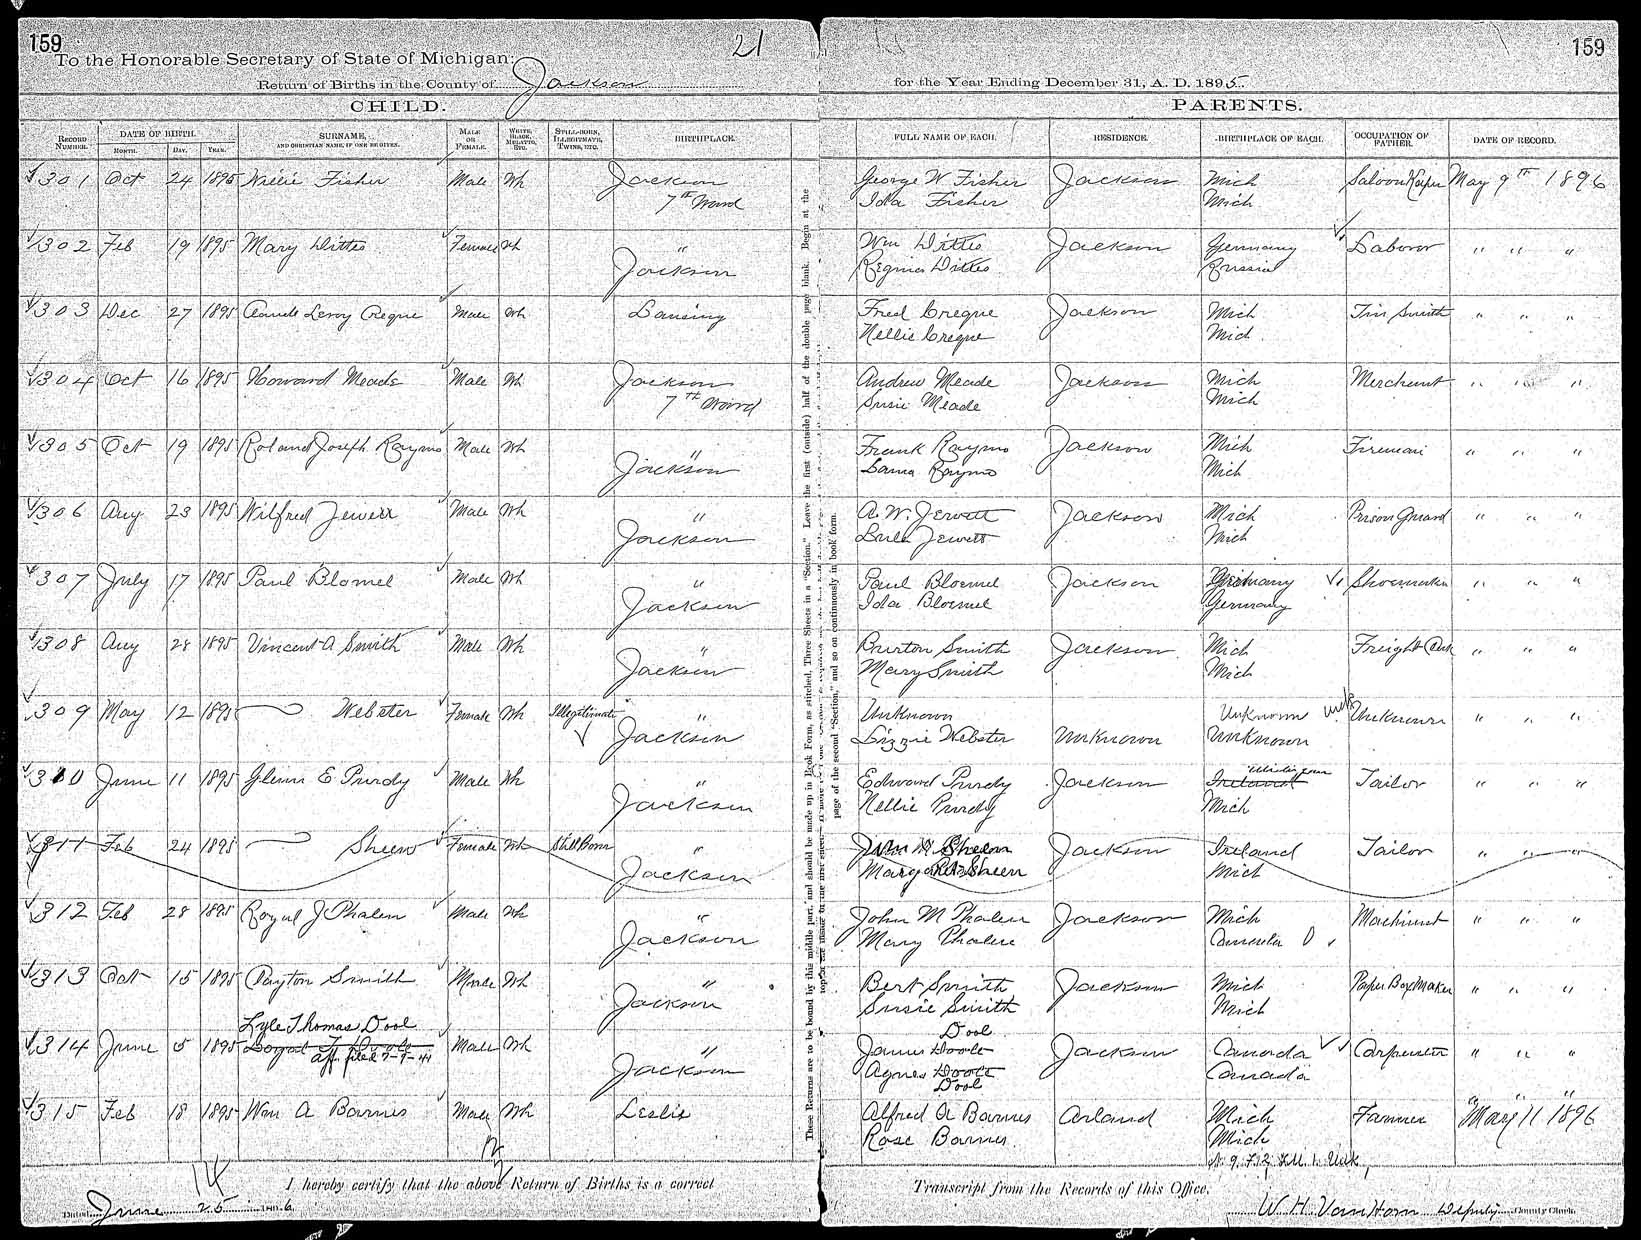 159
To the Honorable Secretary of State of Michigan:
21
Return of Births in the County of Jackson
CHILD.
RECORD NUMBER. DATE OF BIRTH. MONTH. DAY. YEAR. SURNAME, AND CHRISTIAN NAME, IF ONE BE GIVEN. MALE OR FEMALE. WHITE, BLACK, MULATTO, ETC. STILL-BORN, ILLEGITIMATE, TWINS, ETC. BIRTHPLACE.
301 Oct 24 1895 Willie Fisher Male Wh Jackson
7th Ward
302 Feb 19 1895 Mary Dittes Female Wh "
Jackson
303 Dec 27 1895 Claude Leroy Creque Male Wh Lansing
304 Oct 16 1895 Howard Meade Male Wh Jackson
7th Ward
305 Oct 19 1895 Roland Joseph Raymo Male Wh "
Jackson
306 Aug 23 1895 Wilfred Jewett Male Wh "
Jackson
307 July 17 1895 Paul Blomel Male Wh "
Jackson
308 Aug 28 1895 Vincent A Smith Male Wh "
Jackson
309 May 12 1895 Webster Female Wh Illegitimate "
Jackson
310 June 11 1895 Glenn E Purdy Male Wh "
Jackson
311 Feb 24 1895 Sheen Female Wh Still Born "
Jackson
312 Feb 28 1895 Royal J Phalen Male Wh "
Jackson
313 Oct 15 1895 Clayton Smith Male Wh "
Jackson
Lyle Thomas Dool
314 June 5 1895 Loyal T Doole Male Wh "
aff. filed 7-7-41
Jackson
315 Feb 18 1895 Wm A Barnes Male Wh Leslie
12
14
I hereby certify that the above Return of Births is a correct
Dated June 25 1896
These Returns are to be bound by this middle part, and should be made up in Book Form, as stitched, Three Sheets in a "Section." Leave the first (outside) half of the double page blank. Begin at the
page of the second "Section," and so on continuously in book form.
159
for the Year Ending December 31, A. D. 1895
PARENTS.
FULL NAME OF EACH. RESIDENCE. BIRTHPLACE OF EACH. OCCUPATION OF FATHER. DATE OF RECORD.
George W Fisher Jackson Mich Saloon Keeper May 9th 1896
Ida Fisher Mich
Wm Dittes Jackson Germany Laborer " " "
Regina Dittes Russia
Fred Creque Jackson Mich Tin Smith " " "
Nellie Creque Mich
Andrew Meade Jackson Mich Merchant " " "
Susie Meade Mich
Frank Raymo Jackson Mich Fireman " " "
Lama Raymo Mich
A. W. Jewett Jackson Mich Prison Guard " " "
Lula Jewett Mich
Paul Bloemel Jackson Germany Shoemaker " " "
Ida Bloemel Germany
Burton Smith Jackson Mich Freight Clerk " " "
Mary Smith Mich
Unknown Unknown Unk Unknown " " "
Lizzie Webster Unknown Unknown
Michigan
Edward Purdy Jackson Ireland Tailor " " "
Nellie Purdy Mich
Wm M Sheen Jackson Ireland Tailor " " "
Margaret Sheen Mich
John M Phalen Jackson Mich Machinist " " "
Mary Phalen Canada
Bert Smith Jackson Mich Paper Box Maker " " "
Susie Smith Mich
Dool
James Doole Jackson Canada Carpenter " " "
Agnes Doole Canada
Dool
Alfred A Barnes Arland Mich Farmer "May" 11 "1896
Rose Barnes Mich
Transcript from the Records of this Office.
W H VanHorn Deputy County Clerk.